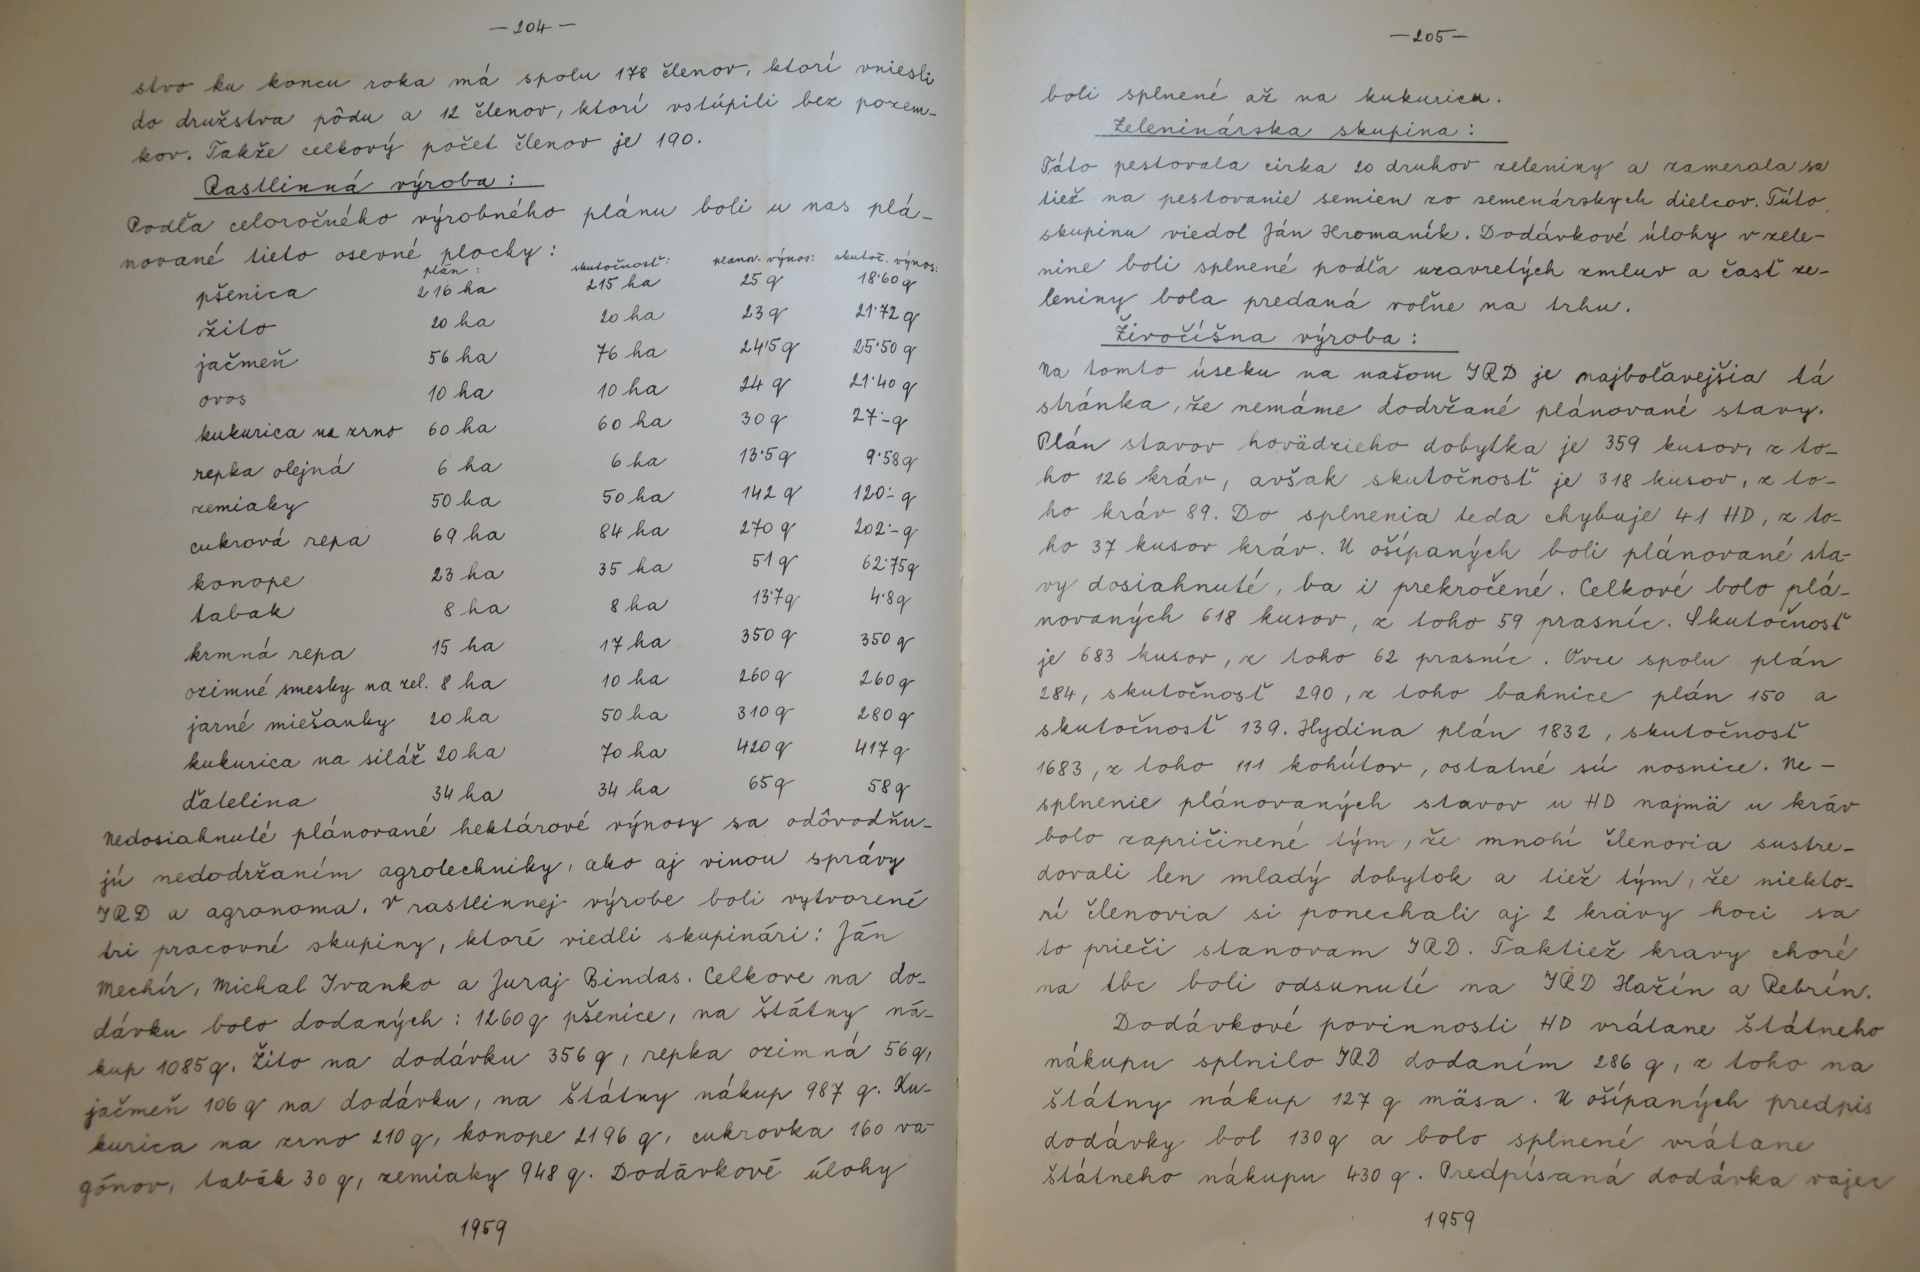 — 204 —
stvo ku koncu roka má spolu 178 členov, ktorí vniesli
do družstva pôdu a 12 členov, ktorí vstúpili bez pozem-
kov. Takže celkový počet členov je 190.
Rastlinná výroba:
Podľa celoročného výrobného plánu boli u nas plá-
nované tieto osevné plochy:
plán: skutočnosť: planov. výnos: skutoč. výnos:
pšenica 216 ha 215 ha 25 q 18·60 q
žito 20 ha 20 ha 23 q 21·72 q
jačmeň 56 ha 76 ha 24·5 q 25·50 q
ovos 10 ha 10 ha 24 q 21·40 q
kukurica na zrno 60 ha 60 ha 30 q 27·- q
repka olejná 6 ha 6 ha 13·5 q 9·58 q
zemiaky 50 ha 50 ha 142 q 120·- q
cukrová repa 69 ha 84 ha 270 q 202·- q
konope 23 ha 35 ha 51 q 62·75 q
tabak 8 ha 8 ha 13·7 q 4·8 q
krmná repa 15 ha 17 ha 350 q 350 q
ozimné smesky na zel. 8 ha 10 ha 260 q 260 q
jarné miešanky 20 ha 50 ha 310 q 280 q
kukurica na siláž 20 ha 70 ha 420 q 417 q
ďatelina 34 ha 34 ha 65 q 58 q
Nedosiahnuté plánované hektárové výnosy sa odôvodňu-
jú nedodržaním agrotechniky, ako aj vinou správy
JRD a agronoma. V rastlinnej výrobe boli vytvorené
tri pracovné skupiny, ktoré viedli skupinári: Ján
Mechír, Michal Ivanko a Juraj Bindas. Celkove na do-
dávku bolo dodaných: 1260 q pšenice, na štátny ná-
kup 1085 q. Žito na dodávku 356 q, repka ozimná 56 q,
jačmeň 106 q na dodávku, na štátny nákup 987 q. Ku-
kurica na zrno 210 q, konope 2196 q, cukrovka 160 va-
gónov, tabák 30 q, zemiaky 948 q. Dodávkové úlohy
1959
— 205 —
boli splnené až na kukuricu.
Zeleninárska skupina:
Táto pestovala cirka 20 druhov zeleniny a zamerala sa
tiež na pestovanie semien zo semenárskych dielcov. Túto
skupinu viedol Ján Hromaník. Dodávkové úlohy v zele-
nine boli splnené podľa uzavretých zmluv a časť ze-
leniny bola predaná voľne na trhu.
Živočíšna výroba:
Na tomto úseku na našom JRD je najboľavejšia tá
stránka, že nemáme dodržané plánované stavy.
Plán stavov hovädzieho dobytka je 359 kusov, z to-
ho 126 kráv, avšak skutočnosť je 318 kusov, z to-
ho kráv 89. Do splnenia teda chybuje 41 HD, z to-
ho 37 kusov kráv. U ošípaných boli plánované sta-
vy dosiahnuté, ba i prekročené. Celkové bolo plá-
novaných 618 kusov, z toho 59 prasníc. Skutočnosť
je 683 kusov, z toho 62 prasníc. Ovce spolu plán
284, skutočnosť 290, z toho bahnice plán 150 a
skutočnosť 139. Hydina plán 1832, skutočnosť
1683, z toho 111 kohútov, ostatné sú nosnice. Ne-
splnenie plánovaných stavov u HD najmä u kráv
bolo zapričinené tým, že mnohí členovia sustre-
dovali len mladý dobytok a tiež tým, že niekto-
rí členovia si ponechali aj 2 krávy hoci sa
to prieči stanovam JRD. Taktiež kravy choré
na tbc boli odsunuté na JRD Hažín a Rebrín.
Dodávkové povinnosti HD vrátane štátneho
nákupu splnilo JRD dodaním 286 q, z toho na
štátny nákup 127 q mäsa. U ošípaných predpis
dodávky bol 130 q a bolo splnené vrátane
štátneho nákupu 430 q. Predpísaná dodávka vajec
1959